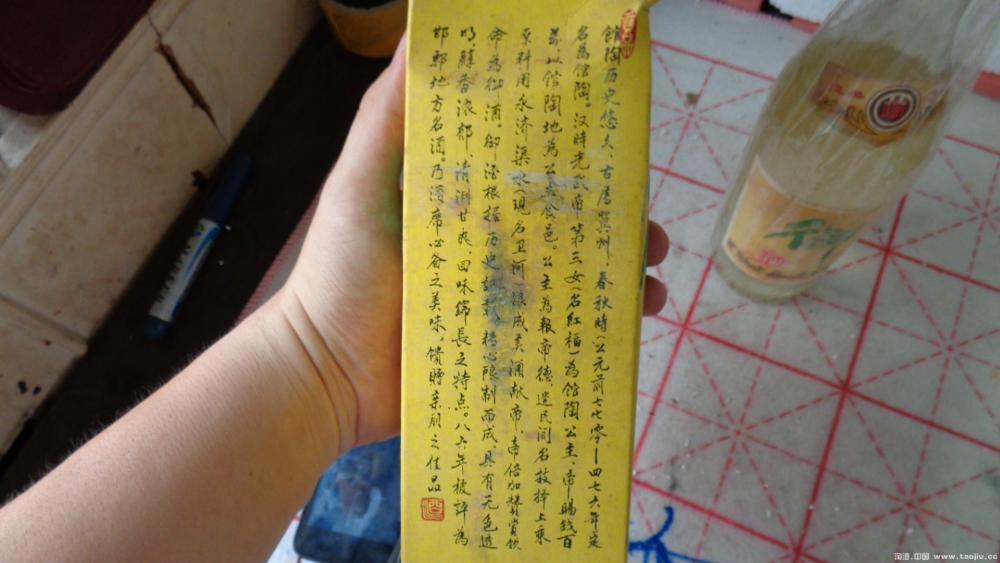 館陶历史悠久，古属冀州，春秋時（公元前七七零—四七六年定
名為館陶。汉時光武帝第三女（名紅福）為館陶公主，帝賜钱百
万，以館陶地為公主食邑。公主為報帝德选民间名技择上乘
原料用永济渠水（现名卫河酿成美酒献帝，帝倍加赞賞饮
命為御酒。御酒根据历史記載，精心酿制而成，具有无色透
明，醇香浓郁，清洌甘爽，回味綿長之特点。八六年被評為
邯鄲地方名酒。乃酒席必备之美味，馈贈亲朋之佳品
淘酒.中国 www.taojiu.cc